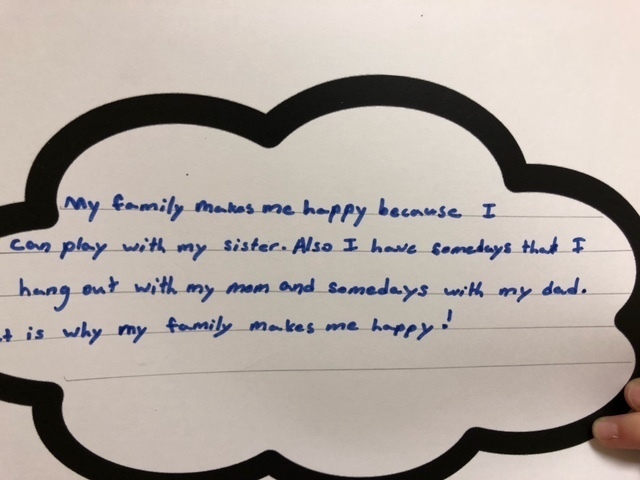 My family makes me happy because I
can play with my sister. Also I have somedays that I
hang out with my mom and somedays with my dad.
t is why my family makes me happy!